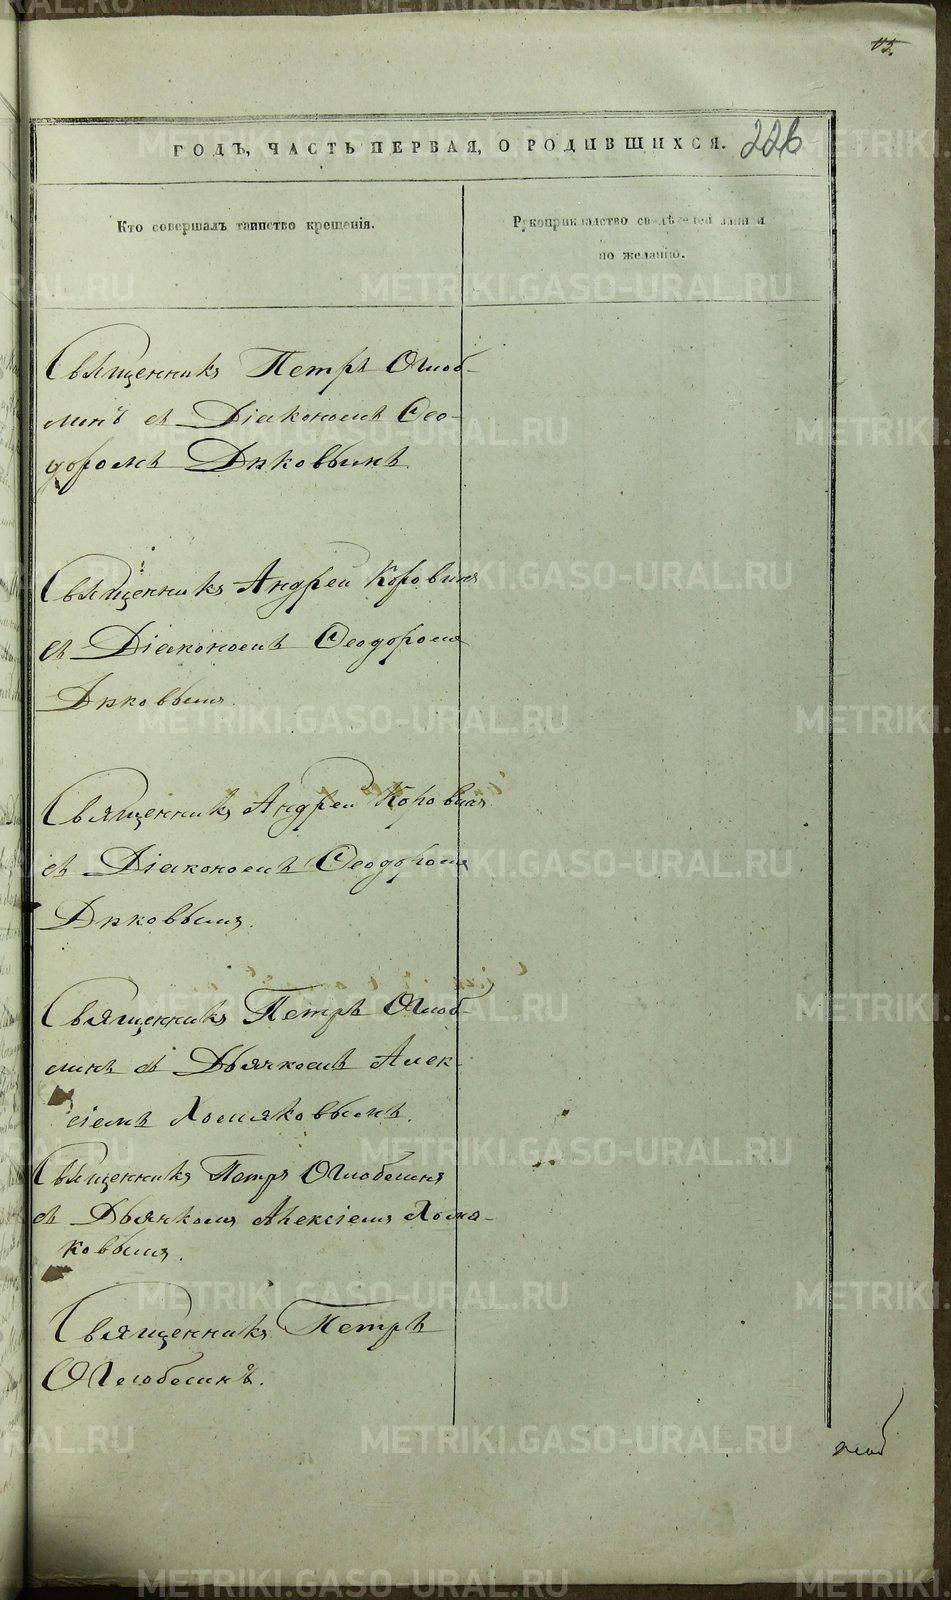 226
ГОДЪ, ЧАСТЬ ПЕРВАЯ, О РОДИВШИХСЯ.
Кто совершалъ таинство крещенія.
Рукоприкладство свидѣтелей записи
по желанію.
Священникъ Петръ Оглоб-
линъ съ Діакономъ Ѳео-
доромъ Дьяковымъ.
Священникъ Андрей Коровинъ
съ Діакономъ Ѳеодоромъ
Дьяковымъ.
Священникъ Андрей Коровинъ
съ Діакономъ Ѳеодоромъ
Дьяковымъ.
Священникъ Петръ Оглоб-
линъ съ Дьячкомъ Алек-
сіемъ Хомяковымъ.
Священникъ Петръ Оглоблинъ
съ Дьячкомъ Алексіемъ Хомя-
ковымъ.
Священникъ Петръ
Оглоблинъ.
METRIKI.GASO-URAL.RU